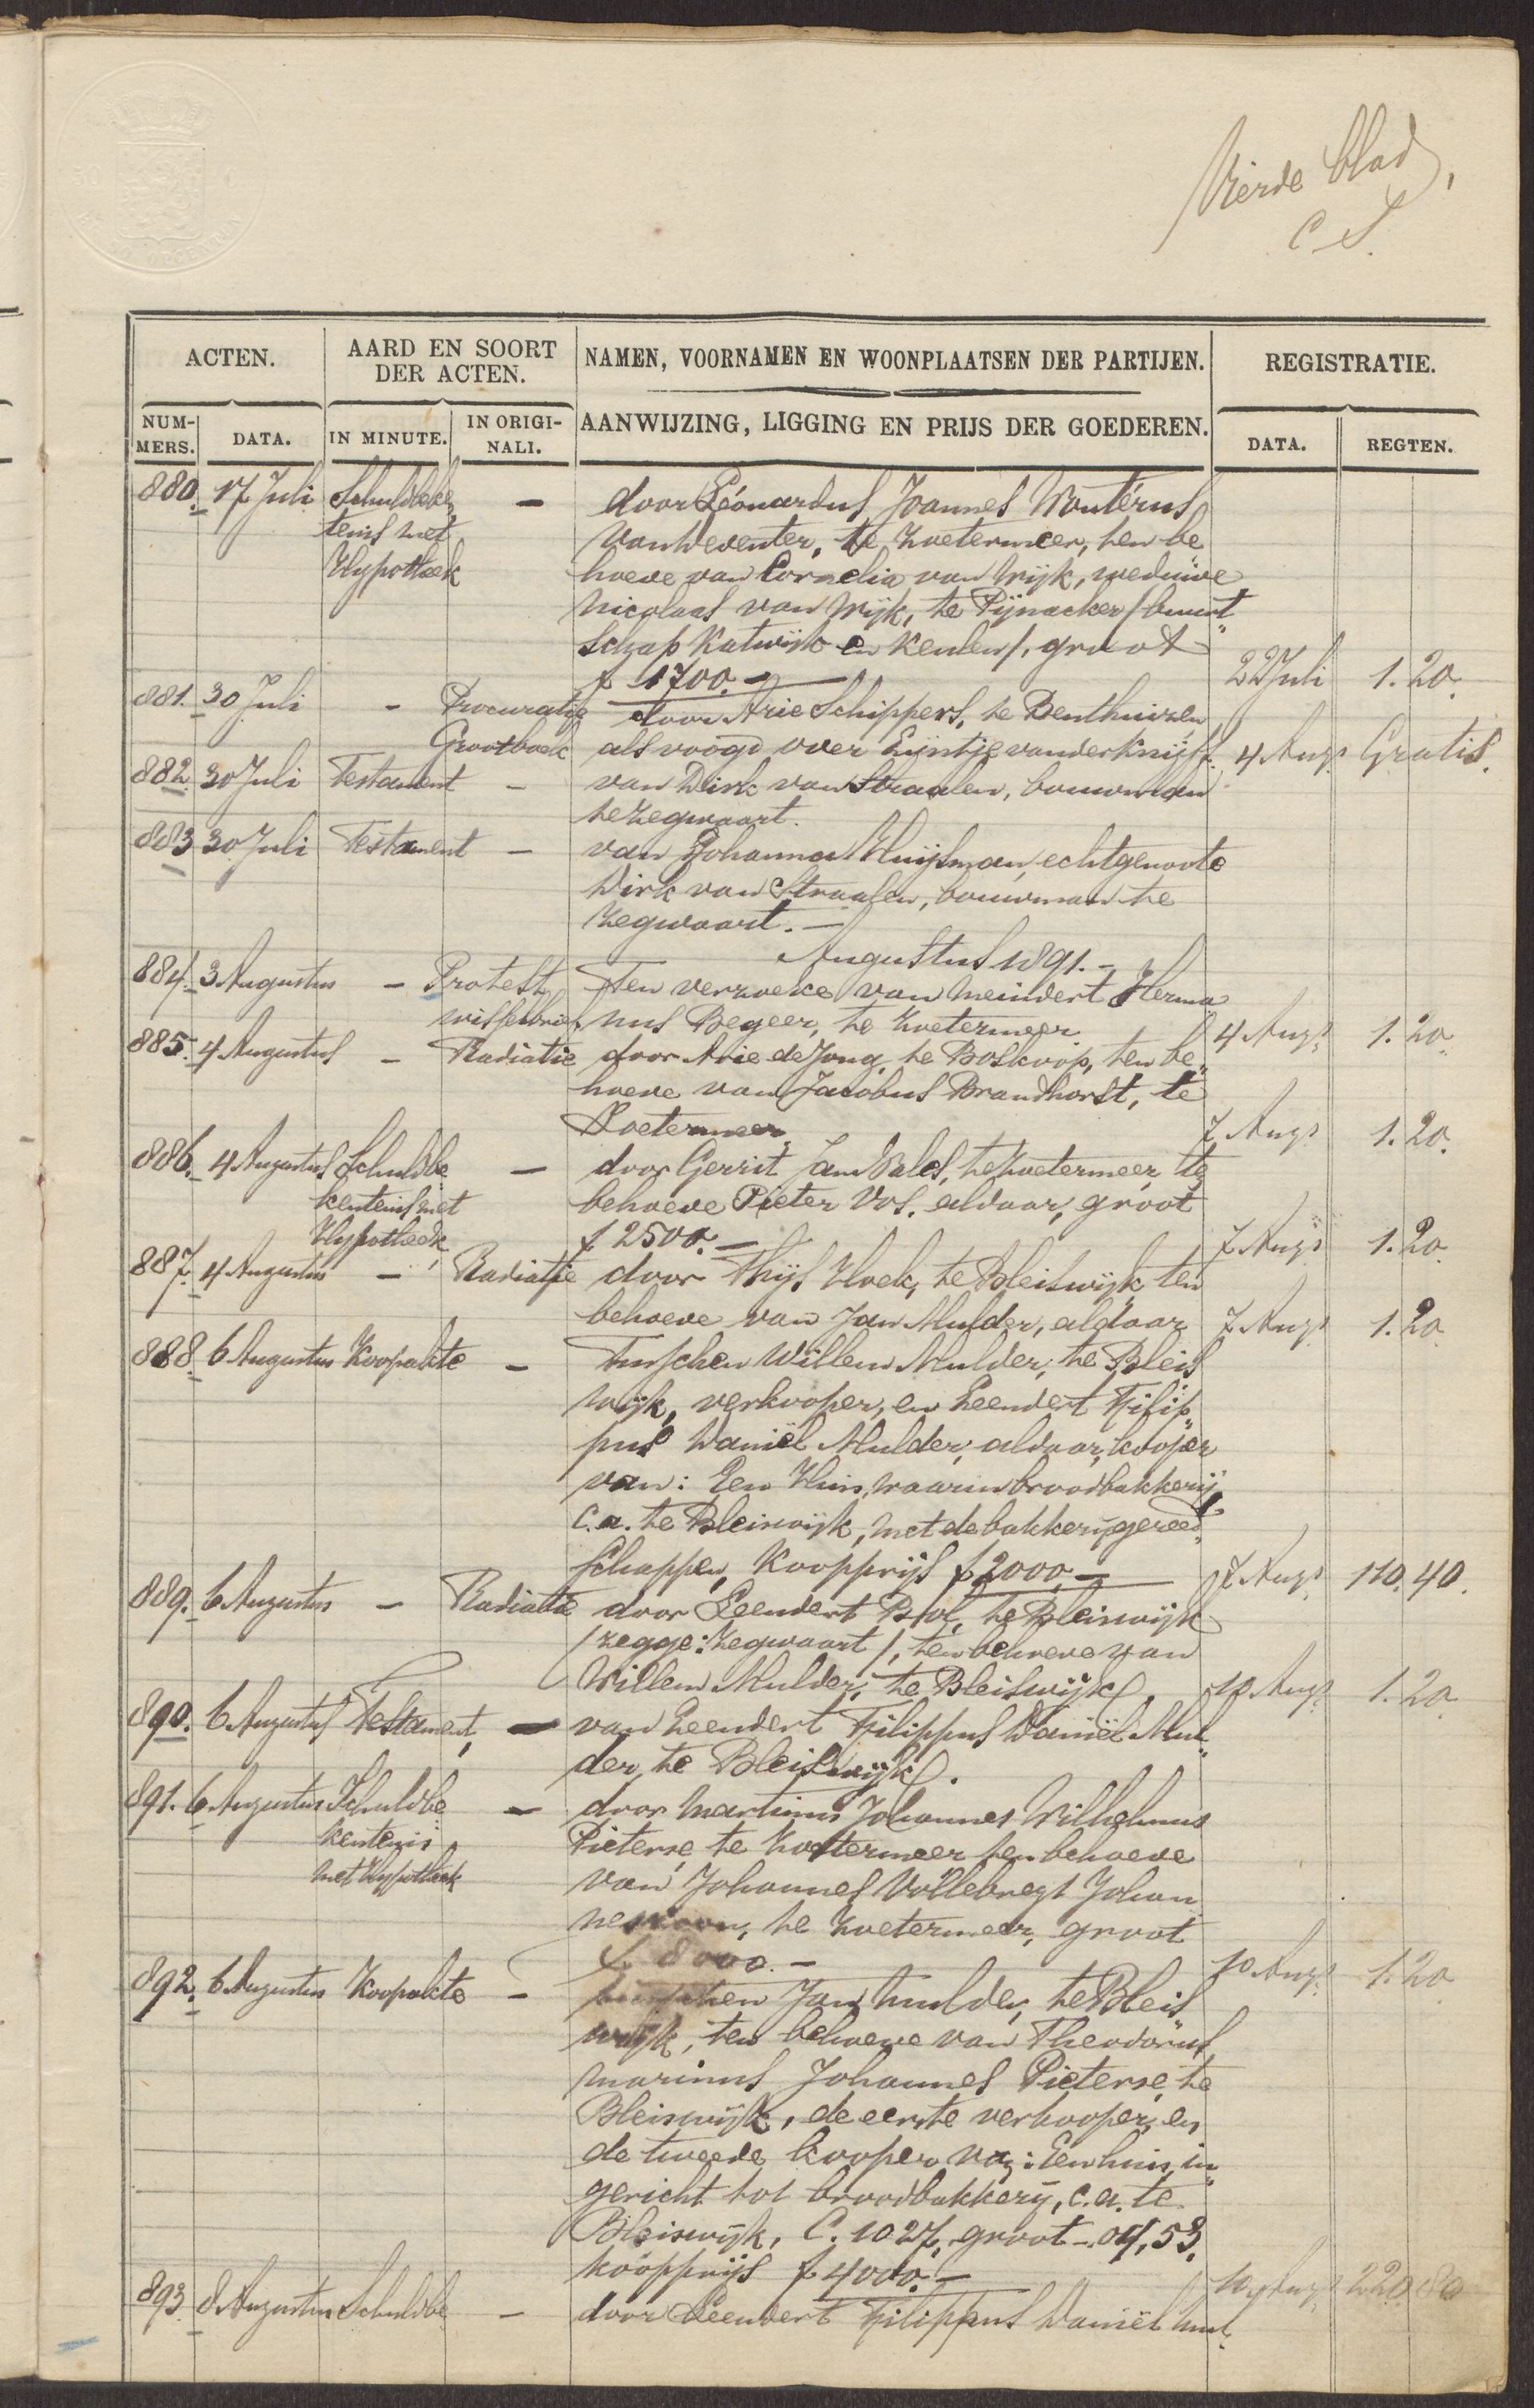 Vierde blad,
C S.
ACTEN.
AARD EN SOORT
DER ACTEN.
NAMEN, VOORNAMEN EN WOONPLAATSEN DER PARTIJEN.
REGISTRATIE.
NUM-
MERS.
DATA.
IN MINUTE.
IN ORIGI-
NALI.
AANWIJZING, LIGGING EN PRIJS DER GOEDEREN.
DATA.
REGTEN.
880. 17 Juli Schuldbeken - door Leonardus Joannes Wouterus
tenis met van Deventer, te Zoetermeer, ten be
Hypotheek hoeve van Cornelia van Wijk, weduwe
Nicolaas van Wijk, te Pijnacker /buurt
schap Katwijk en /, groot
f 1700.- 22 Juli 1.20.
881. 30 Juli - Procuratie door Arie Schippers, te Benthuizen,
Grootboek als voogd over Eijntje van der Knijff. 4 Augs Gratis.
882. 30 Juli Testament - van Dirk van Straalen, bouwman
te Zegwaart.
883 30 Juli Testament - van Johanna Huijsman, echtgenoote
Dirk van Straalen, bouwman te
Zegwaart. -
Augustus 1891. -
884. 3 Augustus - Protest Ten verzoeke van Meindert Herma
wisselbrief nus Begeer, te Zoetermeer 4 Augs 1.20.
885. 4 Augustus - Radiatie door Arie de Jong, te Boskoop, ten be„
hoeve van Jacobus Brandhorst, te
Zoetermeer. 7 Augs 1.20.
886. 4 Augustus Schuldbe - door Gerrit Jan Bales, te Zoetermeer, te
kentenis met behoeve Pieter Vos, aldaar, groot
Hypotheek f 2500.- 7 Augs 1.20
887. 4 Augustus - Radiatie door Thijs Hoek, te Bleiswijk ten
behoeve van Jan Mulder, aldaar 7 Augs 1.20
888. 6 Augustus Koopakte - Tusschen Willem Mulder, te Bleis
wijk, verkooper, en Leendert Filip„
pus Daniël Mulder, aldaar, kooper
van: Een Huis, waarin broodbakkerij
c.a. te Bleiswijk, met de bakkerijgereed„
schappen, Koopprijs f 2000.- 7 Augs 110.40.
889. 6 Augustus - Radiatie door Leendert Bol, te Bleiswijk
/zegge: Zegwaart/, ten behoeve van
Willem Mulder, te Bleiswijk. 10 Augs 1.20
890. 6 Augustus Testament, - van Leendert Filippus Daniël Mul„
der, te Bleiswijk.
891. 6 Augustus Schuldbe - door Martinus Johannes Wilhelmus
kentenis Pieterse, te Zoetermeer ten behoeve
met Hypotheek van Johannes Vollebregt Johan
neszoon, te Zoetermeer, groot
f 8000.- 10 Augs 1.20
892. 6 Augustus Koopakte - tusschen Jan Mulder, te Bleis
wijk, ten behoeve van Theodorus
Marinus Johannes Pieterse, te
Bleiswijk, de eerste verkooper, en
de tweede kooper van: Een huis, in„
gericht tot broodbakkerij, c.a. te
Bleiswijk, C. 1027, groot -.04,53,
koopprijs f 4000.- 10 Augs 220.80
893. 8 Augustus Schuldbe - door Leendert Filippus Daniël Mul„